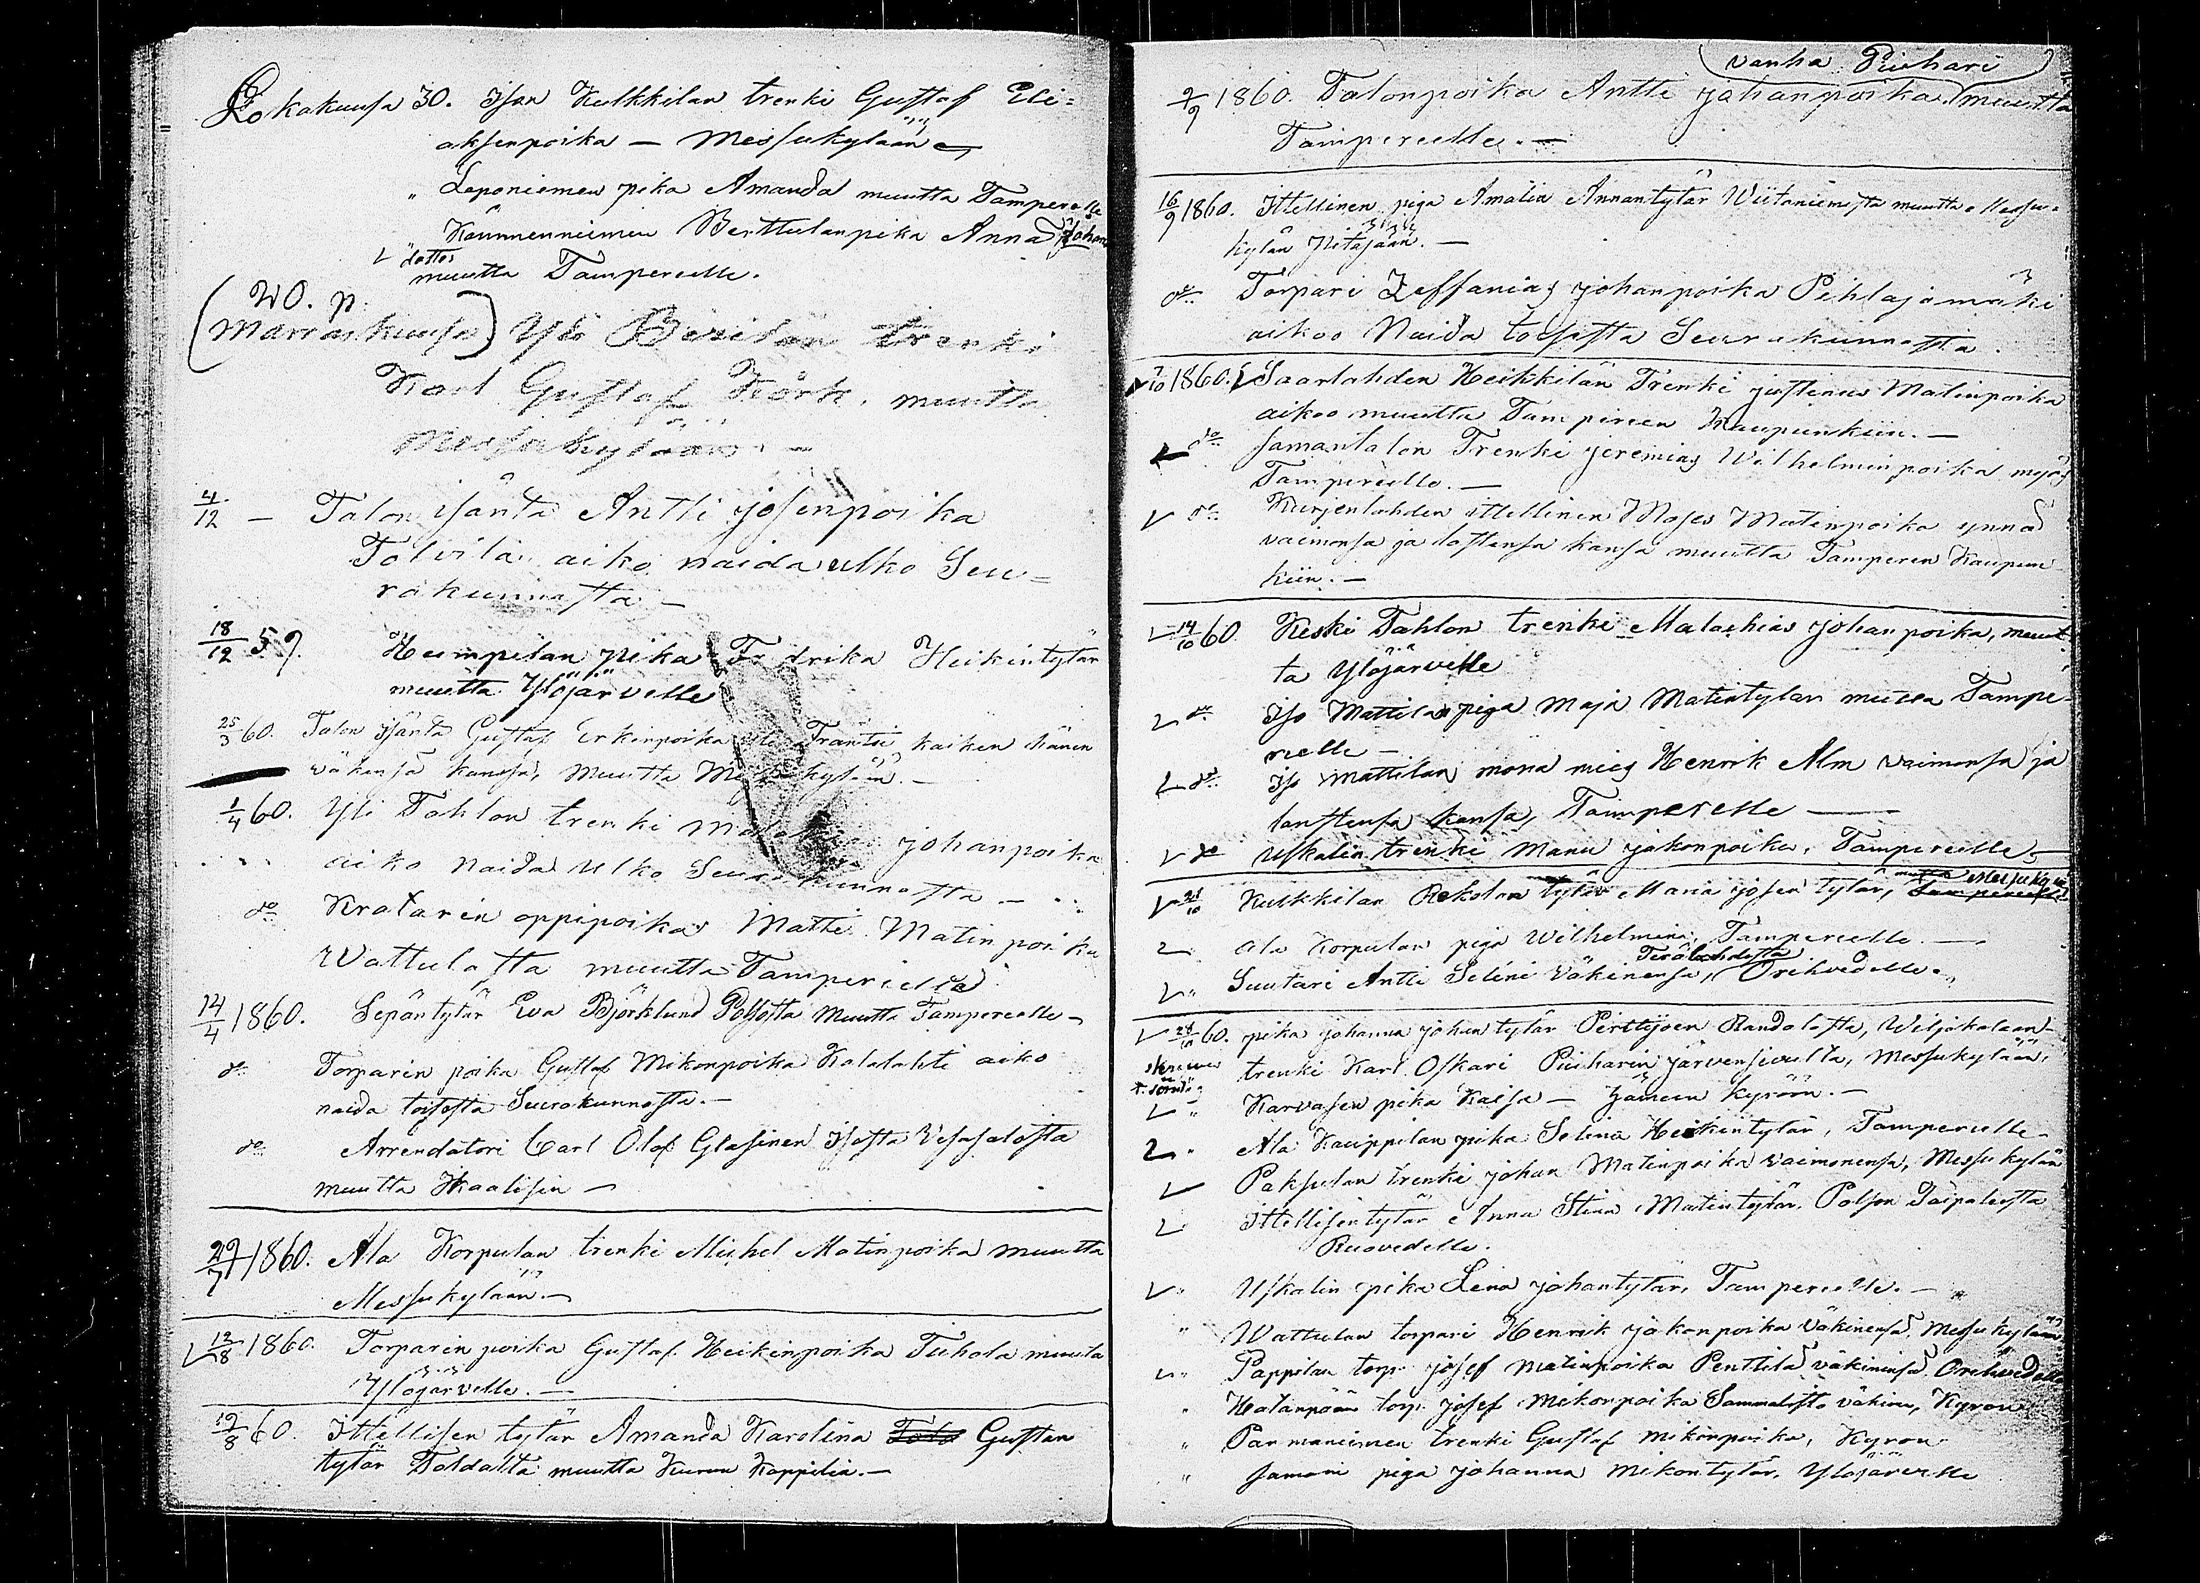 Lokakuusa 30. Ison Kulkkilan trenki Gustaf Eli=
aksenpoika — Messukylään
" Leponiemen pika Amanda muutta Tamperelle
Kämmenniemen Berttulanpika Anna Johans
dotter
muutta Tampereelle.
(20. p.
Marraskuusa) Yli Beritan trenki
Karl Gustaf Körk. muutta
Messukylään —
4/12 — Talon isäntä Antti josenpoika
Tolvila. aiko naida ulko Seu=
rakunnasta —
18/12 59. Humpilan pika Fredrika Heikintytär
muutta Ylöjärvelle
25/3 60. Talon isäntä Gustaf Erkinpoika Frantsi kaiken hänen
väkensä kansa, muutta Messukylään. —
1/4 60. Yli Pohlon trenki johanpoika
aiko naida ulko Seurakunnasta —
do Kratarin oppipoika Matti Matinpoika
Wattulasta muutta Tampereelle
14/4 1860. Sepäntytär Eva Björklund Polsosta muutta Tampereelle —
do Torparin poika Gustaf Mikonpoika Kalalahti aiko
naida toisesta Seurakunnasta. —
do Arrendatori Carl Olof Glasinen Isosta Vesasalosta
muutta Ikaalisiin —
29/7 1860. Ala Korpulan trenki Michel Matinpoika muutta
Messukylään. —
12/8 1860. Torparin poika Gustaf Heikinpoika Tuhola muuta
Ylöjärvelle. —
19/8 60. Ittellisen tytär Amanda Karolina Gustan
tytär Toldalta muutta Kurun Kappelin. —
vanha Piuhari
2/9 1860. Talonpoika Antti johanpoika muutta
Tampereelle. —
16/9 1860. Ittellinen piga Amalia Annantytär Wiitaniemestä muutta Messu=
kylän Pitäjään. —
do Torpari Zeffanias johanpoika Pihlajamäki
aikoo Naida toisesta Seurakunnasta.
7/10 1860. Saarlahden Heikkilän Trenki justinus Matinpoika
aikoo muutta Tampereen Kaupunkiin. —
do samantalon Trenki jeremias Wilhelminpoika myös
Tampereelle. —
do Kirjenlahden ittellinen Moses Matinpoika ynnä
vaimonsa ja lastensa kansa muutta Tamperen Kaupun
kiin. —
14/10 60 Keski Pahlon trenki Malachias johanpoika, muut
ta Ylöjärvelle
do Iso Mattilan piga Maja Matintytär muutta Tampe
reelle —
do Iso Mattilan mona mies Henrik Alm vaimonsa ja
lastensa kansa, Tamperelle —
do Uskalin trenki Manu jakonpoika, Tampereelle —
21/10 Kulkkilan Rekolan tytär Maria josen tytär, muutta Messukylä Tampereelle
Ala Korpulan piga Wilhelmina, Tampereelle. —
Terälahdesta
" Suutari Antti Selini väkinensä, Orihvedelle.
28/10 60. pika johanna johantytär Perttijoen Randalasta, Wiljakalaan —
trenki Karl Oskari Piuharin järvensivulta, Messukylään,
" Karvasen pika Kaisa — Hämeen Kyröön. —
" Ala Kauppilan pika Selina Heikintytär, Tampereelle —
Paksulan trenki johan Matinpoika vaimonensa, Messukylän
Ittellisentytär Anna Stina Matintytär. Polson Taipaleesta
Ruovedelle.
" Uskalin pika Lena johantytär, Tampereelle. —
" Wattulan torpari Henrik jakonpoika väkinensä, Messukylään,
" Pappilan torp. josef Matinpoika Penttilä väkininsä Orihvedelle
" Hatanpään torp. josef Mikonpoika Sammalisto väkine, Kyrön
" Parmaniemen trenki Gustaf Mikonpoika, Kyrön
" samoin piga johanna Mikontytär, Ylöjärvelle